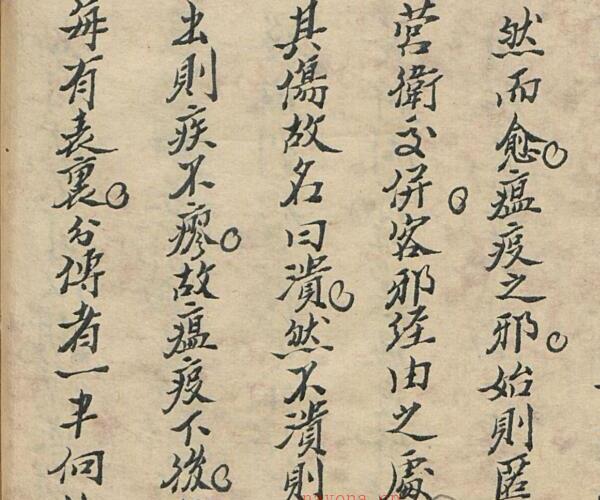 然而愈瘟疫之邪始則匿
营衛交併客邪经由之處
其傷故名曰潰然不潰則
出則疾不瘳故瘟疫下後
每有表裏分傳者一半向